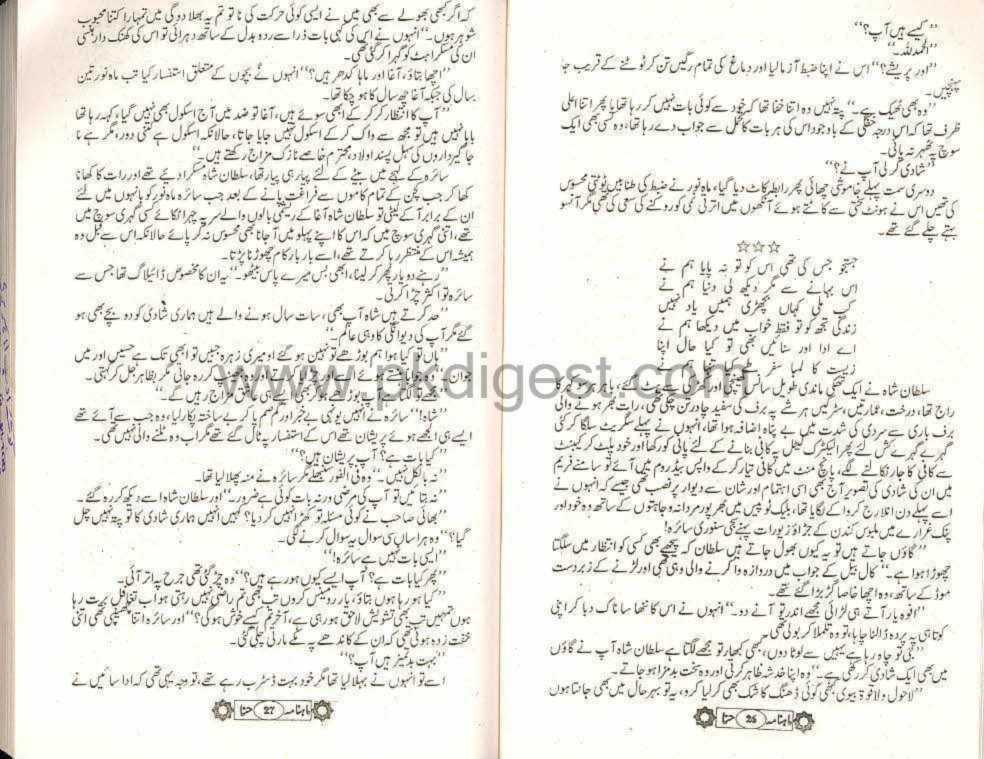 "کیسے ہیں آپ؟"
"الحمدللہ۔"
"اور پریشے؟" اس نے اپنا ضبط آزما لیا اور دماغ کی تمام رگیں تن کر ٹوٹنے کے قریب جا
پہنچیں۔
"وہ بھی ٹھیک ہے۔" پتہ نہیں وہ اتنا خفا تھا کہ خود سے کوئی بات نہیں کر رہا تھا یا پھر اتنا اعلی
ظرف تھا کہ اس درجہ خفگی کے باوجود اس کی ہر بات کا تحمل سے جواب دے رہا تھا، وہ کسی بھی ایک
سوچ پر ٹھہر نہ پائی۔
"شادی کر لی آپ نے؟"
دوسری سمت پہلے خاموشی چھائی پھر رابطہ کاٹ دیا گیا، ماہ نور نے ضبط کی طنابیں ٹوٹتی محسوس
کی تھیں اس نے ہونٹ سختی سے کاٹتے ہوئے آنکھوں میں اترتی نمی کو روکنے کی سعی کی تھی مگر آنسو
بہتے چلے گئے تھے۔
☆☆☆
جستجو جس کی تھی اس کو تو نہ پایا ہم نے
اس بہانے سے مگر دیکھ لی دنیا ہم نے
کب ملی کہاں بچھڑی ہمیں یاد نہیں
زندگی تجھ کو تو فقط خواب میں دیکھا ہم نے
اے ادا اور سنائیں بھی تو کیا حال اپنا
زیست کا لمبا سفر طے کیا تنہا ہم نے
سلطان شاہ نے ایک تھکی ماندی طویل سانس کھینچی اور کھڑکی سے ہٹ گئے، باہر برف کا
راج تھا، درخت، عمارتیں، سڑکیں ہر شے پہ برف کی سفید چادر تن چکی تھی، رات بھر ہونے والی
برف باری سے سردی کی شدت میں بے پناہ اضافہ ہوا تھا، انہوں نے پہلے سگریٹ سلگا کر کئی
گہرے گہرے کش لئے پھر الیکٹرک کیٹل پہ کافی بنانے کے لئے پانی کو رکھا اور خود پلٹ کر کیبنٹ
سے کافی کا جار نکالنے لگے، پانچ منٹ میں کافی تیار کر کے واپس بیڈروم میں آئے تو سامنے فریم
میں ان کی شادی کی تصویر آج بھی اسی اہتمام اور شان سے دیوار پر نصب تھی جیسے کہ انہوں نے
اسے پہلے دن انلارج کروا کے لگایا تھا، بلیک ٹو پیس میں بھرپور مردانہ وجاہتوں کے ساتھ وہ خود اور
پنک غرارے میں ملبوس کندن کے جڑاؤ زیورات پہنے سجی سنوری سائرہ!
"گاؤں جاتے ہیں تو یہ کیوں بھول جاتے ہیں سلطان کہ پیچھے بھی کسی کو انتظار میں سلگتا
چھوڑا ہوا ہے۔" کال بیل کے جواب میں دروازہ وا کرنے والی وہی تھی اور لڑنے کے زبردست
موڈ کے ساتھ، وہ اچھا خاصا گڑبڑا گئے تھے۔
"افوہ یار آتے ہی لڑائی مجھے اندر تو آنے دو۔" انہوں نے اس کا ننھا سا ناک دبا کر اپنی
کوتاہی پہ پردہ ڈالنا چاہا، تو وہ تلملا کر بولی تھی۔
"جی تو چاہ رہا ہے یہیں سے لوٹا دوں، کبھی کبھار تو مجھے لگتا ہے سلطان شاہ آپ نے گاؤں
میں بھی ایک شادی کر رکھی ہے۔" وہ اپنا خدشہ ظاہر کرتی اور وہ سخت بدمزا ہو جاتے۔
"لاحول ولا قوۃ بیوی کبھی کوئی ڈھنگ کا شک بھی کر لیا کرو، یہ تو بہرحال میں بھی جانتا ہوں
ماہنامہ 26 حنا
کہ اگر کبھی بھولے سے بھی میں نے ایسی کوئی حرکت کی نا تو تم یہ بھلا دو گی میں تمہارا کتنا محبوب
شوہر ہوں۔" انہوں نے اس کی کہی بات ذرا سے ردو بدل کے ساتھ دہرائی تو اس کی کھنک دار ہنسی
ان کی مسکراہٹ کو گہرا کر گئی تھی۔
"اچھا بتاؤ، آغا اور ماہا کدھر ہیں؟" انہوں نے بچوں کے متعلق استفسار کیا تب ماہ نور تین
سال کی جبکہ آغا چھ سال کا ہو چکا تھا۔
"آپ کا انتظار کر کر کے ابھی سوئے ہیں، آغا تو ضد میں آج اسکول بھی نہیں گیا، کہہ رہا تھا
بابا نہیں ہیں تو مجھ سے واک کر کے اسکول نہیں جایا جاتا، حالانکہ اسکول ہے کتنی دور، مگر ہے نا
جاگیرداروں کی سہل پسند اولاد، محترم خاصے نازک مزاج رکھتے ہیں۔"
سائرہ کے لہجے میں بیٹے کے لئے پیار ہی پیار تھا، سلطان شاہ مسکرا دئیے تھے اور رات کا کھانا
کھا کر جب کچن کے تمام کاموں سے فراغت پانے کے بعد جب سائرہ ماہ نور کو بانہوں میں لئے
ان کے برابر آ کے لیٹی تو سلطان شاہ آغا کے ریشمی بالوں والے سر پہ چہرا ٹکائے کسی گہری سوچ میں
تھے، اتنی گہری سوچ میں کہ اس کا اپنے پہلو میں آ جانا بھی محسوس نہ کر پائے حالانکہ اس سے قبل وہ
ہمیشہ اس کے منتظر رہا کرتے تھے، اسے بار بار کام چھوڑنا پڑتا۔
"رہنے دو یار پھر کر لینا، ابھی بس میرے پاس بیٹھو۔" یہ ان کا مخصوص ڈائیلاگ تھا جس سے
سائرہ تو اکثر چڑا کرتی۔
"حد کرتے ہیں شاہ آپ بھی، سات سال ہونے والے ہیں ہماری شادی کو دو بچے بھی ہو
گئے مگر آپ کی دیوانگی کا وہی عالم۔"
"ہاں تو کیا ہوا ہم بوڑھے تو نہیں ہو گئے او میری زہرہ جبیں تو ابھی تک ہے حسیں اور میں
جوان۔" وہ جواباً
"شاہ!" سائرہ نے انہیں یونہی بے خبر اور گم صم پا کر بے ساختہ پکار لیا، وہ جب سے آئے تھے
ایسے ہی الجھے ہوئے پریشان تھے اس کے استفسار پہ ٹال گئے تھے مگر اب وہ ٹلنے والی نہیں تھی۔
"کیا بات ہے؟ آپ پریشان ہیں؟"
"نہ بالکل نہیں۔" وہ فی الفور سنبھلے مگر سائرہ نے منہ پھلا لیا تھا۔
"نہ بتائیں تو آپ کی مرضی ورنہ بات کوئی ہے ضرور۔" اور سلطان شاہ اسے دیکھ کر رہ گئے۔
"بھائی صاحب نے کوئی مسئلہ تو کھڑا نہیں کر دیا؟ کہیں انہیں ہماری شادی کا تو پتہ نہیں چل
گیا؟" وہ ہراساں سی سوال پہ سوال کرنے لگی۔
"ایسی بات نہیں ہے سائرہ!"
"پھر کیا بات ہے؟ آپ ایسے کیوں ہو رہے ہیں؟" وہ چڑ گئی تھی جرح پہ اتر آئی۔
"کیا ہو رہا ہوں بتاؤ، یار رومینس کروں تب بھی تم راضی نہیں رہتی ہو اب تغافل برت رہا
ہوں تمہیں تب بھی تشویش لاحق ہو رہی ہے، آخر تم کیسے خوش ہو گی؟" اور سائرہ اتنا جھینپی تھی اتنی
خفت زدہ ہوئی تھی کہ ان کے کاندھے پہ مکے مارتی چلی گئی۔
"بہت بدتمیز ہیں آپ؟"
اسے تو انہوں نے بہلا لیا تھا مگر خود بہت ڈسٹرب رہے تھے، تو وجہ یہی تھی کہ ادا سائیں نے
ماہنامہ 27 حنا
www.pkdigest.com